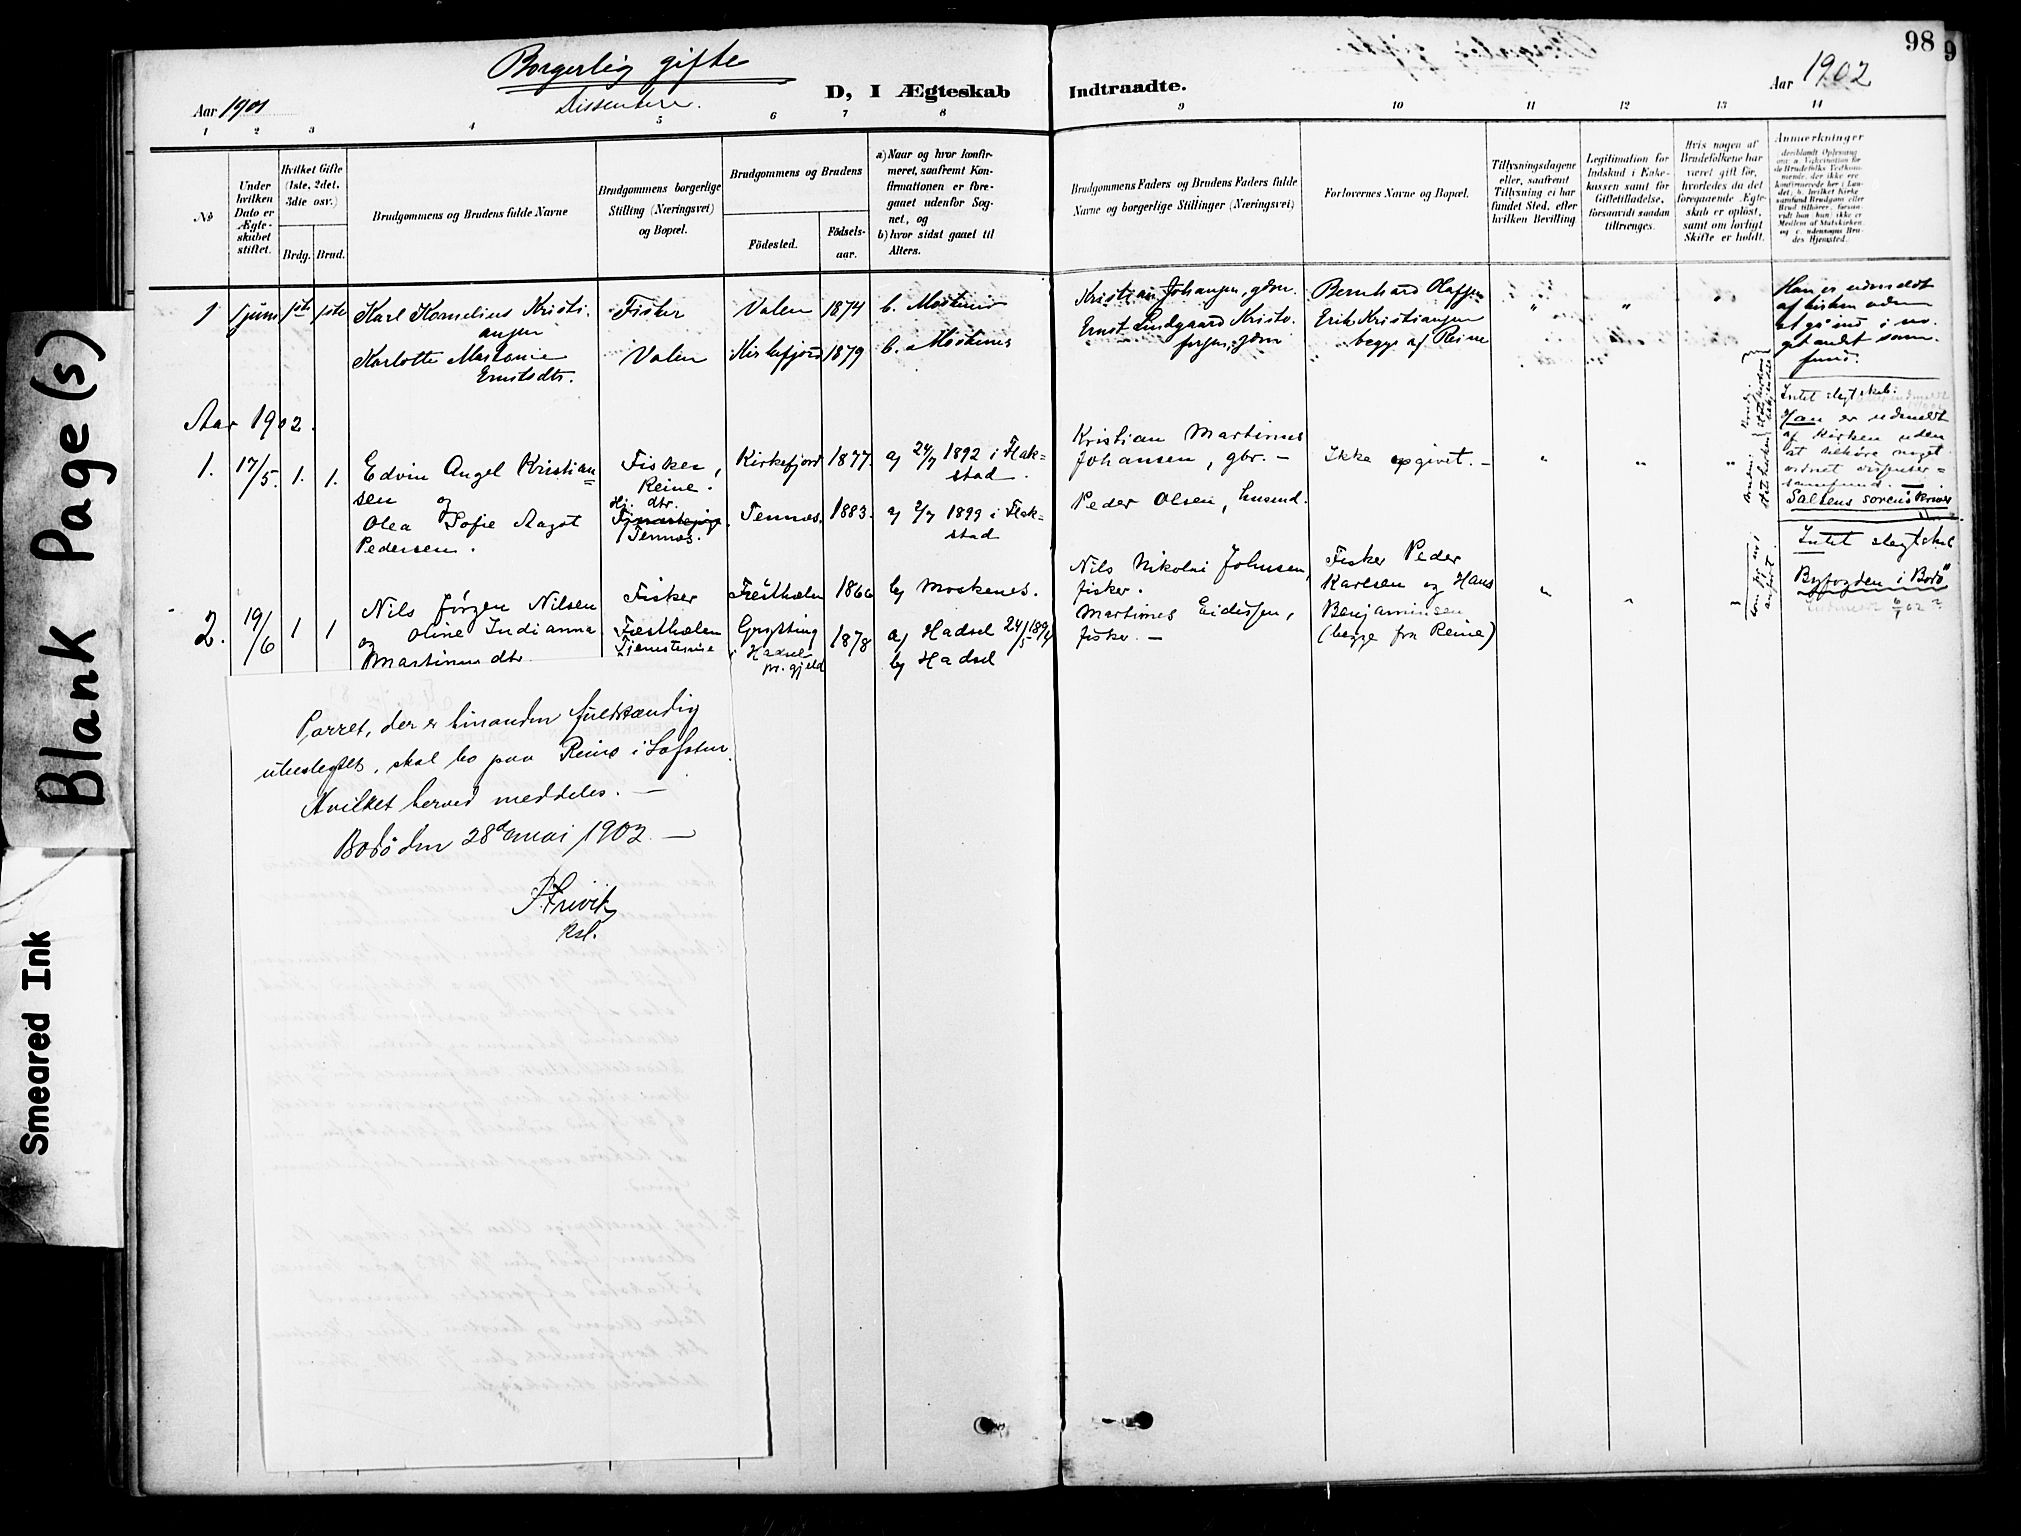 Blank Page(s)
Smeared Ink
Borgerlig gifte
Dissentere.
Aar 1901
D, I Ægteskab
Indtraadte.
Aar 1902
98
9
1 2 3 4 5 6 7 8 9 10 11 12 13 14
No
Under
hvilken
Dato er
Ægte-
skabet
stiftet.
Hvilket Gifte
(1ste, 2det,
3die osv.)
Brdg. Brud.
Brudgommens og Brudens fulde Navne
Brudgommens borgerlige
Stilling (Næringsvei)
og Bopæl.
Brudgommens og Brudens
Födested.
Födsels-
aar.
a) Naar og hvor konfir-
meret, saafremt Kon-
firmationen er fore-
gaaet udenfor Sog-
net, og
b) hvor sidst gaaet til
Alters.
Brudgommens Faders og Brudens Faders fulde
Navne og borgerlige Stillinger (Næringsvei)
Forlovernes Navne og Bopæl.
Tillysningsdagene
eller, saafremt
Tillysning ei har
fundet Sted, efter
hvilken Bevilling.
Legitimation for
Indskud i Enke-
kassen samt for
Giftetilladelse,
forsaavidt saadan
tiltrænges.
Hvis nogen af
Brudefolkene har
været gift før,
hvorledes da det
foregaaende Ægte-
skab er opløst,
samt om lovligt
Skifte er holdt.
Anmærkninger
1 juni 1ste 1ste
Karl Kornelius Kristi-
ansen
Karlotte
Ernstsdtr.
Fisker
Valen
Valen 1874 b. Moskenes
Kirkefjord 1879 b. Moskenes
Kristian Johansen, gdm.
Ernst Lindgaard Kristo-
fersen, gdm
Bernhard Olafsen
Erik Kristiansen
begge af Reine
Han er udmeldt
af kirken uden
at gå ind i no-
get andet sam-
fund.
Aar 1902.
1. 17/5. 1. 1.
Edvin Angel Kristian=
sen og
Olea Sofie Aagot
Pedersen.
Fisker,
Reine.
Hj. dtr.
Tennes.
Kirkefjord 1877. a) 24/7 1892 i Flak=
stad.
Tennes. 1883. a) 2/7 1899 i Flak=
stad
Kristian Martinus
Johansen, gbr. –
Peder Olsen, husmd.
Ikke opgivet. –
Intet slegtskab.
Han er udmeldt
af Kirken uden
at tilhøre noget
ordnet dissenter=
samfund. –
Saltens sorenskriver
2. 19/6 1 1
Nils Jørgen Nilsen
og Oline Indianna
Martinusdtr.
Fisker
Festhælen
Tjenestepige
Festhælen 1866 b) Moskenes.
Grytting
i Hadsel
pr.gjeld
1878 a) Hadsel 24/5 1894
b) Hadsel
Nils Nikolai Johnsen,
fisker.
Martinus Eidissen,
fisker. –
Fisker Peder
Karlsen og Hans
Benjaminsen
(begge fra Reine)
Intet slegtskab
Byfogden i Bodø
Parret, der er hinanden fuldstændig
ubeslegtet, skal bo paa Reine i Lofoten.
Hvilket herved meddeles. –
Bodø den 28de mai 1902. –